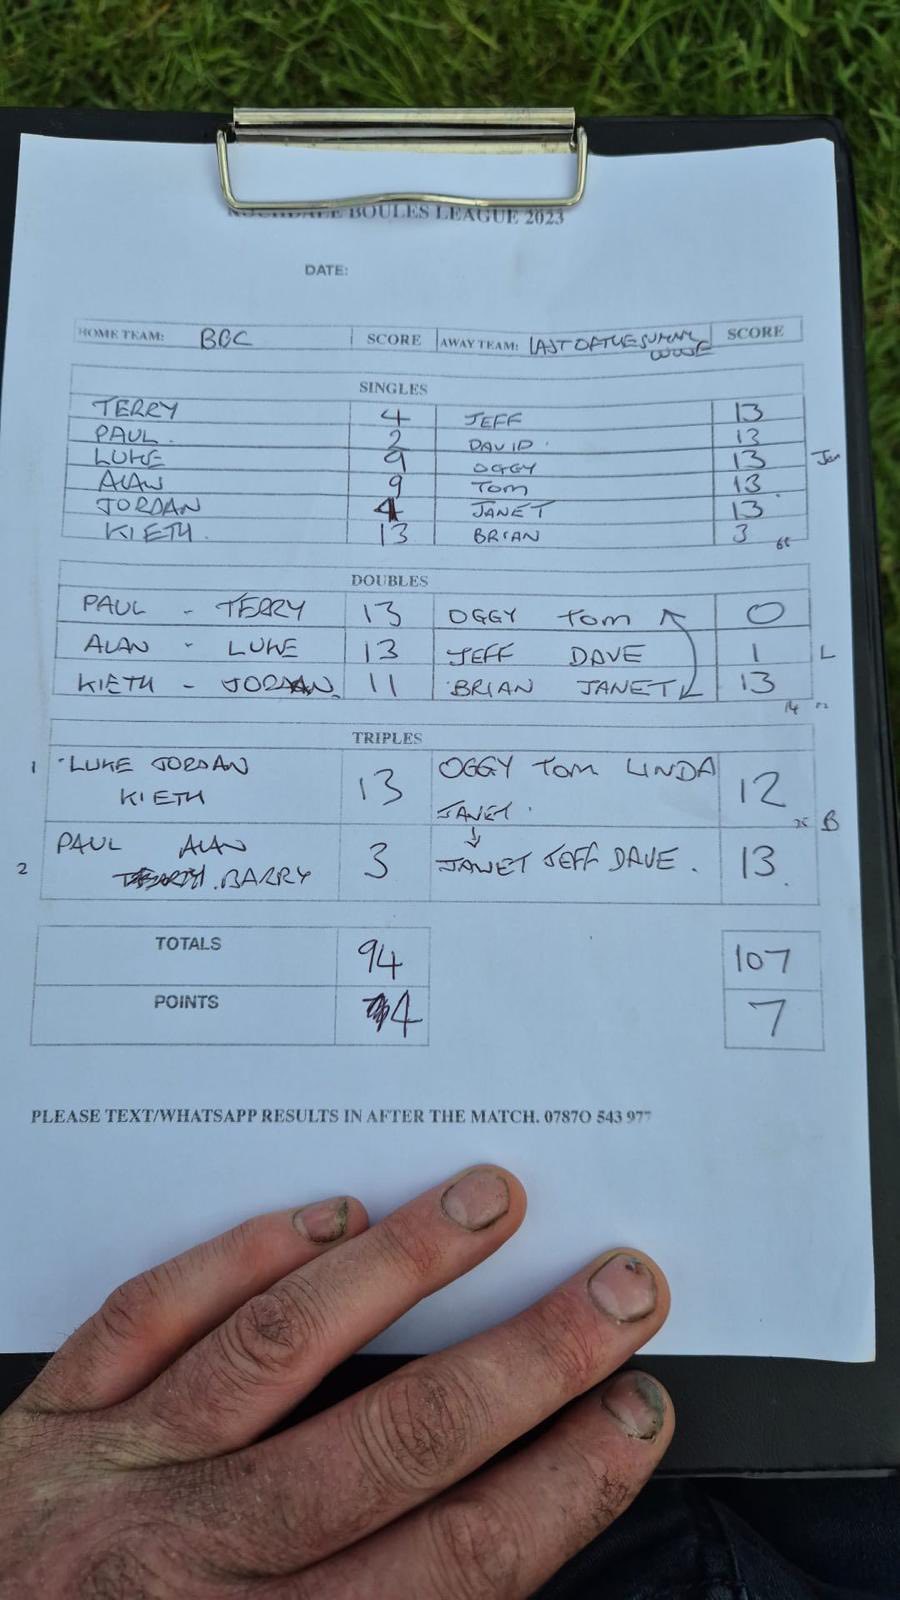 ROCHDALE BOULES LEAGUE 2023
DATE:
HOME TEAM: BBC SCORE AWAY TEAM: LAST OF THE SUMMER WINE SCORE
SINGLES
TERRY 4 JEFF 13
PAUL 2 DAVID 13
LUKE 9 OGGY 13
ALAN 9 TOM 13
JORDAN 4 JANET 13
KIETH 13 BRIAN 3
68
DOUBLES
PAUL - TERRY 13 OGGY TOM 0
ALAN - LUKE 13 JEFF DAVE 1 L
KIETH - JORDAN. 11 BRIAN JANET 13
14
TRIPLES
1 LUKE JORDAN KIETH 13 OGGY TOM LINDA 12
JANET
25 B
2 PAUL ALAN BARRY 3 JANET JEFF DAVE. 13
TOTALS 94 107
POINTS 4 7
PLEASE TEXT/WHATSAPP RESULTS IN AFTER THE MATCH. 0787O 543 977